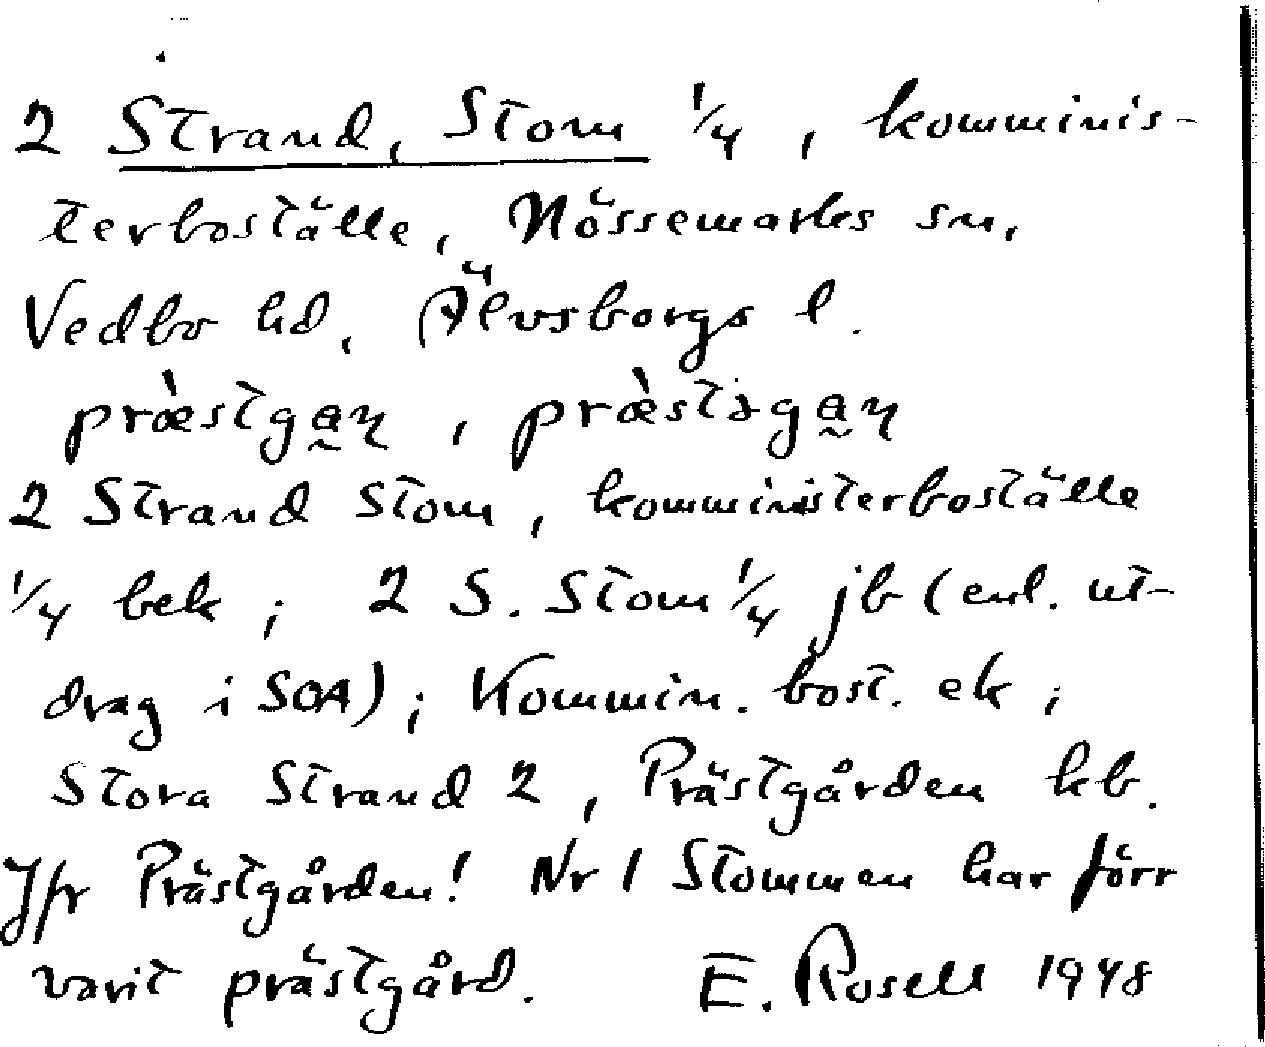 2 Strand, Stom 1/4, komminis-
terboställe, Nössemarks sn,
Vedbo hd, Älvsborgs l.
præ̀stga̰ɳ, præ̀stəga̰ɳ
2 Strand Stom, komministerboställe
1/4 bek; 2 S. Stom 1/4 jb (enl. ut-
drag i SOA); Kommin. bost. ek;
Stora Strand 2, Prästgården kb.
Jfr Prästgården! Nr 1 Stommen har förr
varit prästgård. E. Rosell 1948